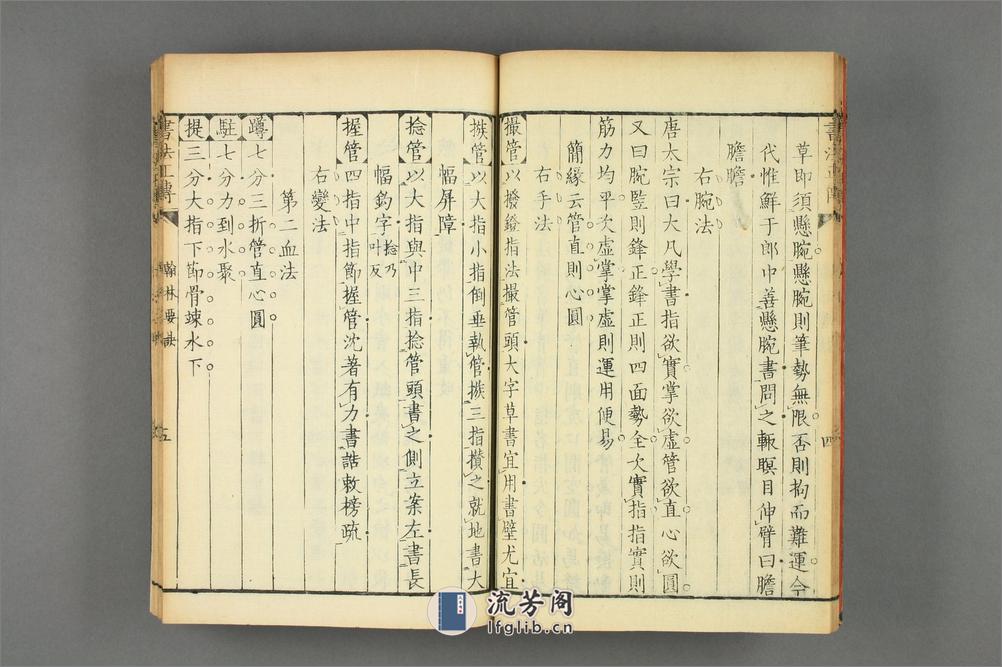 草即須懸腕懸腕則筆勢無限否則拘而難運今
代惟鮮于郎中善懸腕書問之輙瞑目伸臂曰膽
膽膽
右腕法
唐太宗曰大凡學書指欲實掌欲虛管欲直心欲圓
又曰腕竪則鋒正鋒正則四面勢全次實指指實則
筋力均平次虛掌掌虛則運用便易
簡緣云管直則心圓
右手法
撮管以撥鐙指法撮管頭大字草書宜用書壁尤宜
搣管以大指小指倒垂執管搣三指攢之就地書大
幅屏障
捻管以大指與中三指捻管頭書之側立案左書長
幅鈎字捻乃叶反
握管四指中指節握管沈著有力書誥敕榜疏
右變法
第二血法
蹲七分三折管直心圓
駐七分力到水聚
提三分大指下節骨竦水下
書法正傳
翰林要訣
五
四
流芳阁
lfglib.cn